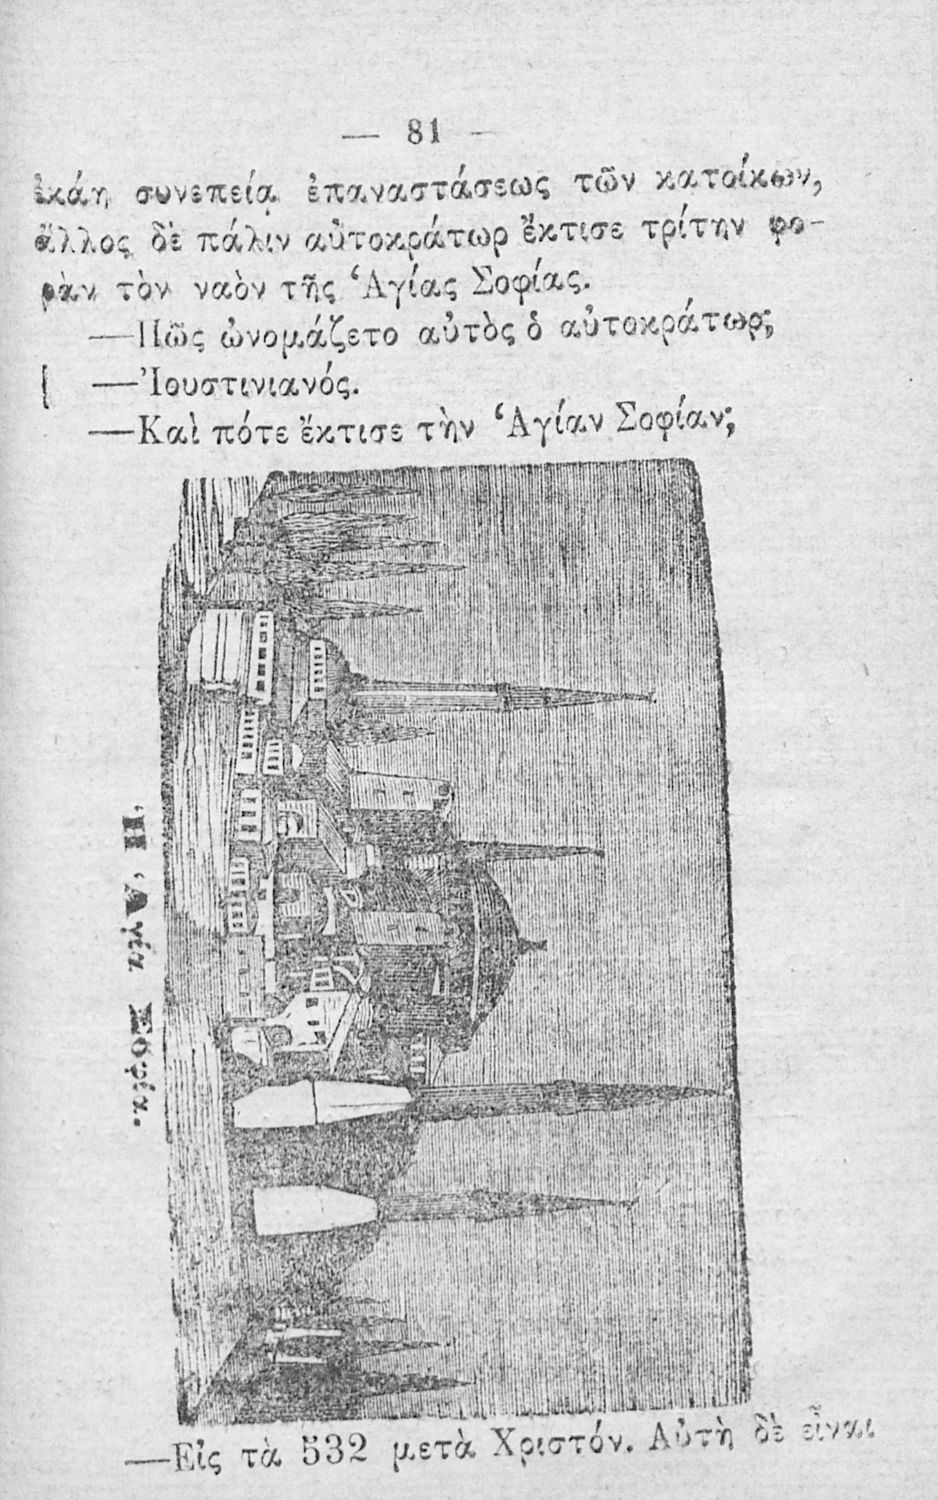 — 81 —
ἐκάη συνεπείᾳ ἐπαναστάσεως τῶν κατοίκων,
ἄλλος δὲ πάλιν αὐτοκράτωρ ἔκτισε τρίτην φο-
ρὰν τὸν ναὸν τῆς Ἁγίας Σοφίας.
—Πῶς ὠνομάζετο αὐτὸς ὁ αὐτοκράτωρ;
—Ἰουστινιανός.
—Καὶ πότε ἔκτισε τὴν Ἁγίαν Σοφίαν;
Ἡ Ἁγία Σοφία.
—Εἰς τὰ 532 μετὰ Χριστόν. Αὐτὴ δὲ εἶναι